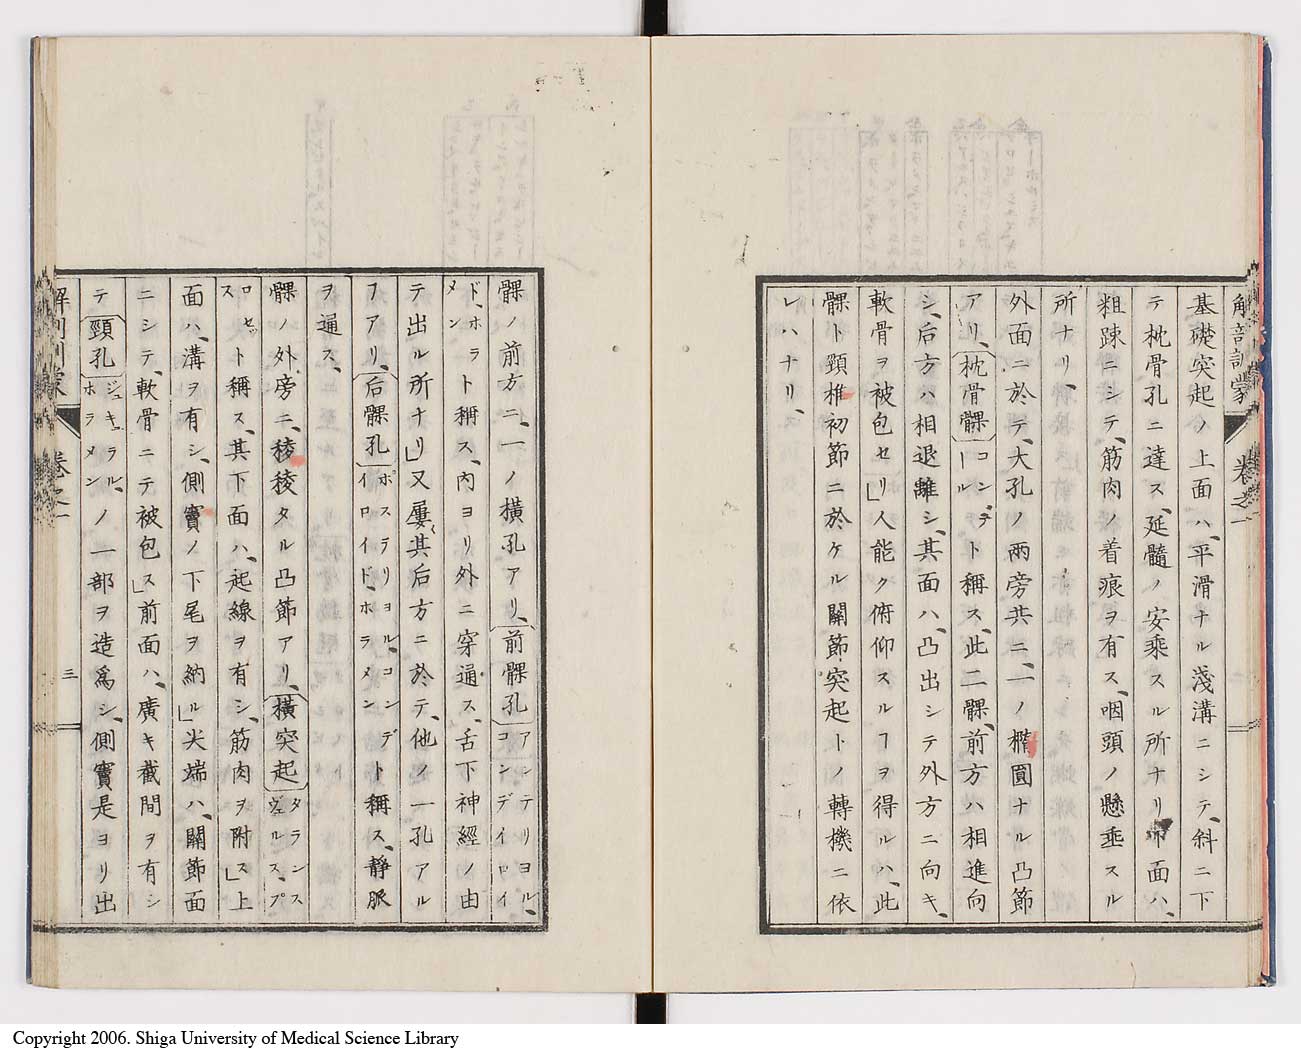 解剖訓蒙 卷之一
基礎突起ノ上面ハ、平滑ナル淺溝ニシテ、斜ニ下
テ枕骨孔ニ達ス、延髓ノ安乘スル所ナリ、下面ハ、
粗疎ニシテ、筋肉ノ着痕ヲ有ス、咽頭ノ懸垂スル
所ナリ、
外面ニ於テ、大孔ノ兩旁共ニ、一ノ橢圓ナル凸節
アリ、枕骨髁コンデールト稱ス、此二髁、前方ハ相進向
シ、后方ハ相退離シ、其面ハ、凸出シテ外方ニ向キ、
軟骨ヲ被包セリ」人能ク俯仰スルヿヲ得ルハ、此
髁ト頸椎初節ニ於ケル關節突起トノ轉機ニ依
レハナリ、
髁ノ前方ニ、一ノ橫孔アリ、前髁孔アンテリヨル、コンデイロイ
ド、ホラメント稱ス、內ヨリ外ニ穿通ス、舌下神經ノ由
テ出ル所ナリ」又屢其后方ニ於テ、他ノ一孔アル
ヿアリ、后髁孔ポステリヨル、コンデイロイド、ホラメント稱ス、靜脈
ヲ通ス、
髁ノ外旁ニ、稜稜タル凸節アリ、橫突起タランスヴェルス、プ
ロセットスト稱ス、其下面ハ、起線ヲ有シ、筋肉ヲ附ス」上
面ハ、溝ヲ有シ、側竇ノ下尾ヲ納ル」尖端ハ、關節面
ニシテ、軟骨ニテ被包ス」前面ハ、廣キ截間ヲ有シ
テ頸孔ジュギュラル、ホラメンノ一部ヲ造爲シ、側竇是ヨリ出
解剖訓蒙 卷之一 三
Copyright 2006. Shiga University of Medical Science Library